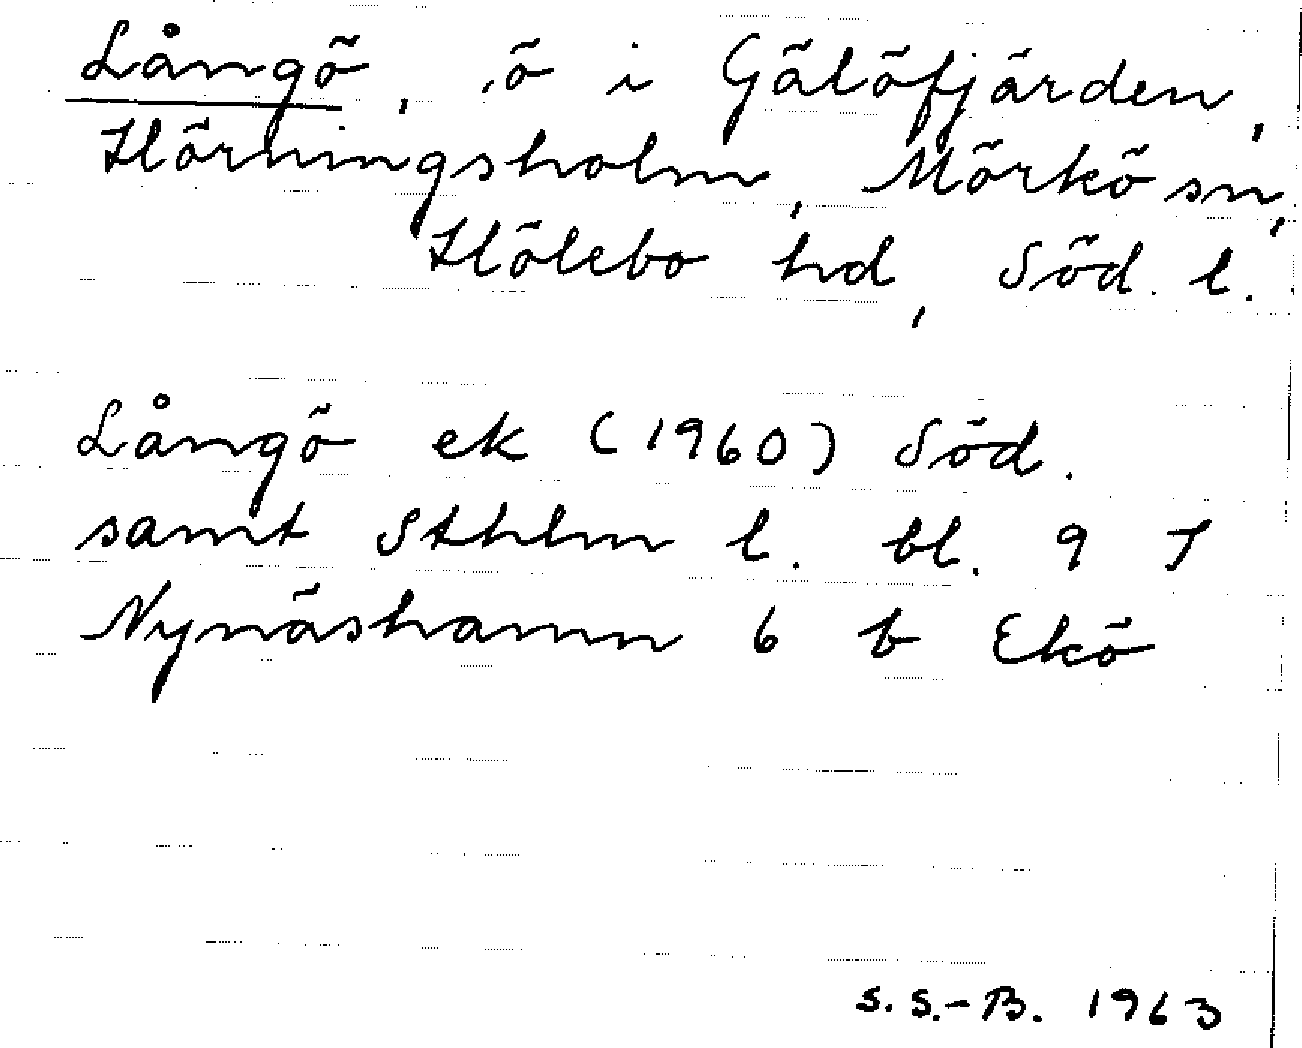 Långö, ö i Gälöfjärden,
Hörningsholm, Mörkö sn,
Hölebo hd, Söd. l.
Långö ek (1960) Söd.
samt Sthlm l. bl. 9 I
Nynäshamn 6 b Ekö
S. S.-B. 1963